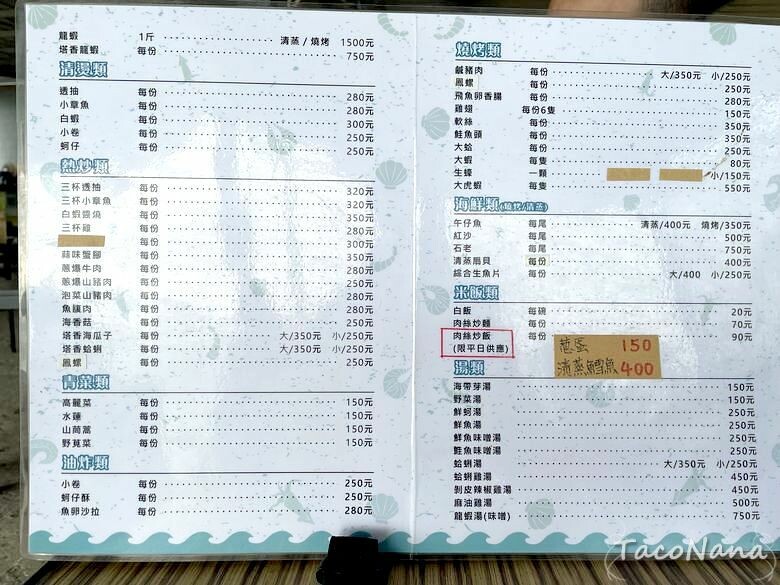 龍蝦 1斤 清蒸/燒烤 1500元
塔香龍蝦 每份 750元
清燙類
透抽 每份 280元
小章魚 每份 280元
白蝦 每份 300元
小卷 每份 250元
蚵仔 每份 250元
熱炒類
三杯透抽 每份 320元
三杯小章魚 每份 320元
白蝦鹽燒 每份
三杯雞 每份
每份 300元
蒜味蟹腳 每份
蔥爆牛肉 每份 280元
蔥爆山豬肉 每份 280元
泡菜山豬肉 每份 280元
魚腹肉 每份 280元
海香菇 每份 250元
塔香海瓜子 每份 大/350元 小/250元
塔香蛤蜊 每份 大/350元 小/250元
鳳螺 每份 250元
青菜類
高麗菜 每份 150元
水蓮 每份 150元
山茼蒿 每份 150元
野莧菜 每份 150元
油炸類
小卷 每份 250元
蚵仔酥 每份 250元
魚卵沙拉 每份 280元
燒烤類
鹹豬肉 每份 大/350元 小/250元
鳳螺 每份 250元
飛魚卵香腸 每份 280元
雞翅 每份6隻 150元
軟絲 每份 350元
鮭魚頭 每份 350元
大蛤 每份 250元
大蝦 每隻 80元
生蠔 一顆 小/150元
大虎蝦 每隻 550元
海鮮類(燒烤/清蒸)
午仔魚 每尾 清蒸/400元 燒烤/350元
紅沙 每尾 500元
石老 每尾 750元
清蒸扇貝 每份 400元
綜合生魚片 每份 大/400 小/250元
米飯類
白飯 每碗 20元
肉絲炒麵 每份 70元
肉絲炒飯 每份 90元
(限平日供應)
蔥蛋 150
清蒸鱈魚 400
湯類
海帶芽湯 150元
野菜湯 150元
鮮蚵湯 250元
鮮魚湯 250元
鮮魚味噌湯 250元
鮭魚味噌湯 250元
蛤蜊湯 大/350元 小/250元
蛤蜊雞湯 450元
剝皮辣椒雞湯 450元
麻油雞湯 500元
龍蝦湯(味噌) 750元
TacoNana